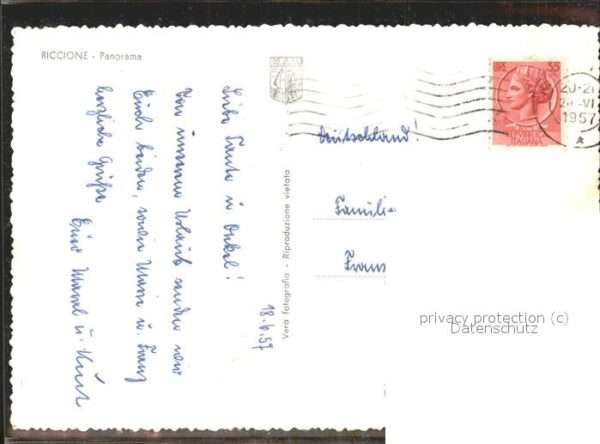 RICCIONE - Panorama
Liebe Tante u. Onkel!
Von unserem Urlaub senden wir
Euch beiden, sowie Mami u. Franz
herzliche Grüße
Eure u. Kurt
18.6.57
Vera fotografia - Riproduzione vietata
Deutschland!
Famili
Franz
35
ITALIANA
20-21
VI
1957
privacy protection (c)
Datenschutz